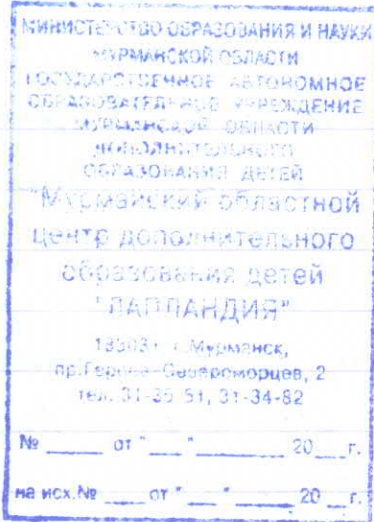 МИНИСТЕРСТВО ОБРАЗОВАНИЯ И НАУКИ
МУРМАНСКОЙ ОБЛАСТИ
ГОСУДАРСТВЕННОЕ АВТОНОМНОЕ
ОБРАЗОВАТЕЛЬНОЕ УЧРЕЖДЕНИЕ
МУРМАНСКОЙ ОБЛАСТИ
ДОПОЛНИТЕЛЬНОГО
ОБРАЗОВАНИЯ ДЕТЕЙ
"Мурманский областной
центр дополнительного
образования детей
"ЛАПЛАНДИЯ"
183031 г.Мурманск,
пр.Героев-Североморцев, 2
тел. 31-35-51, 31-34-82
№ ____ от "___" ________ 20 ___г.
на исх.№ ____ от "___" _______ 20 __ г.